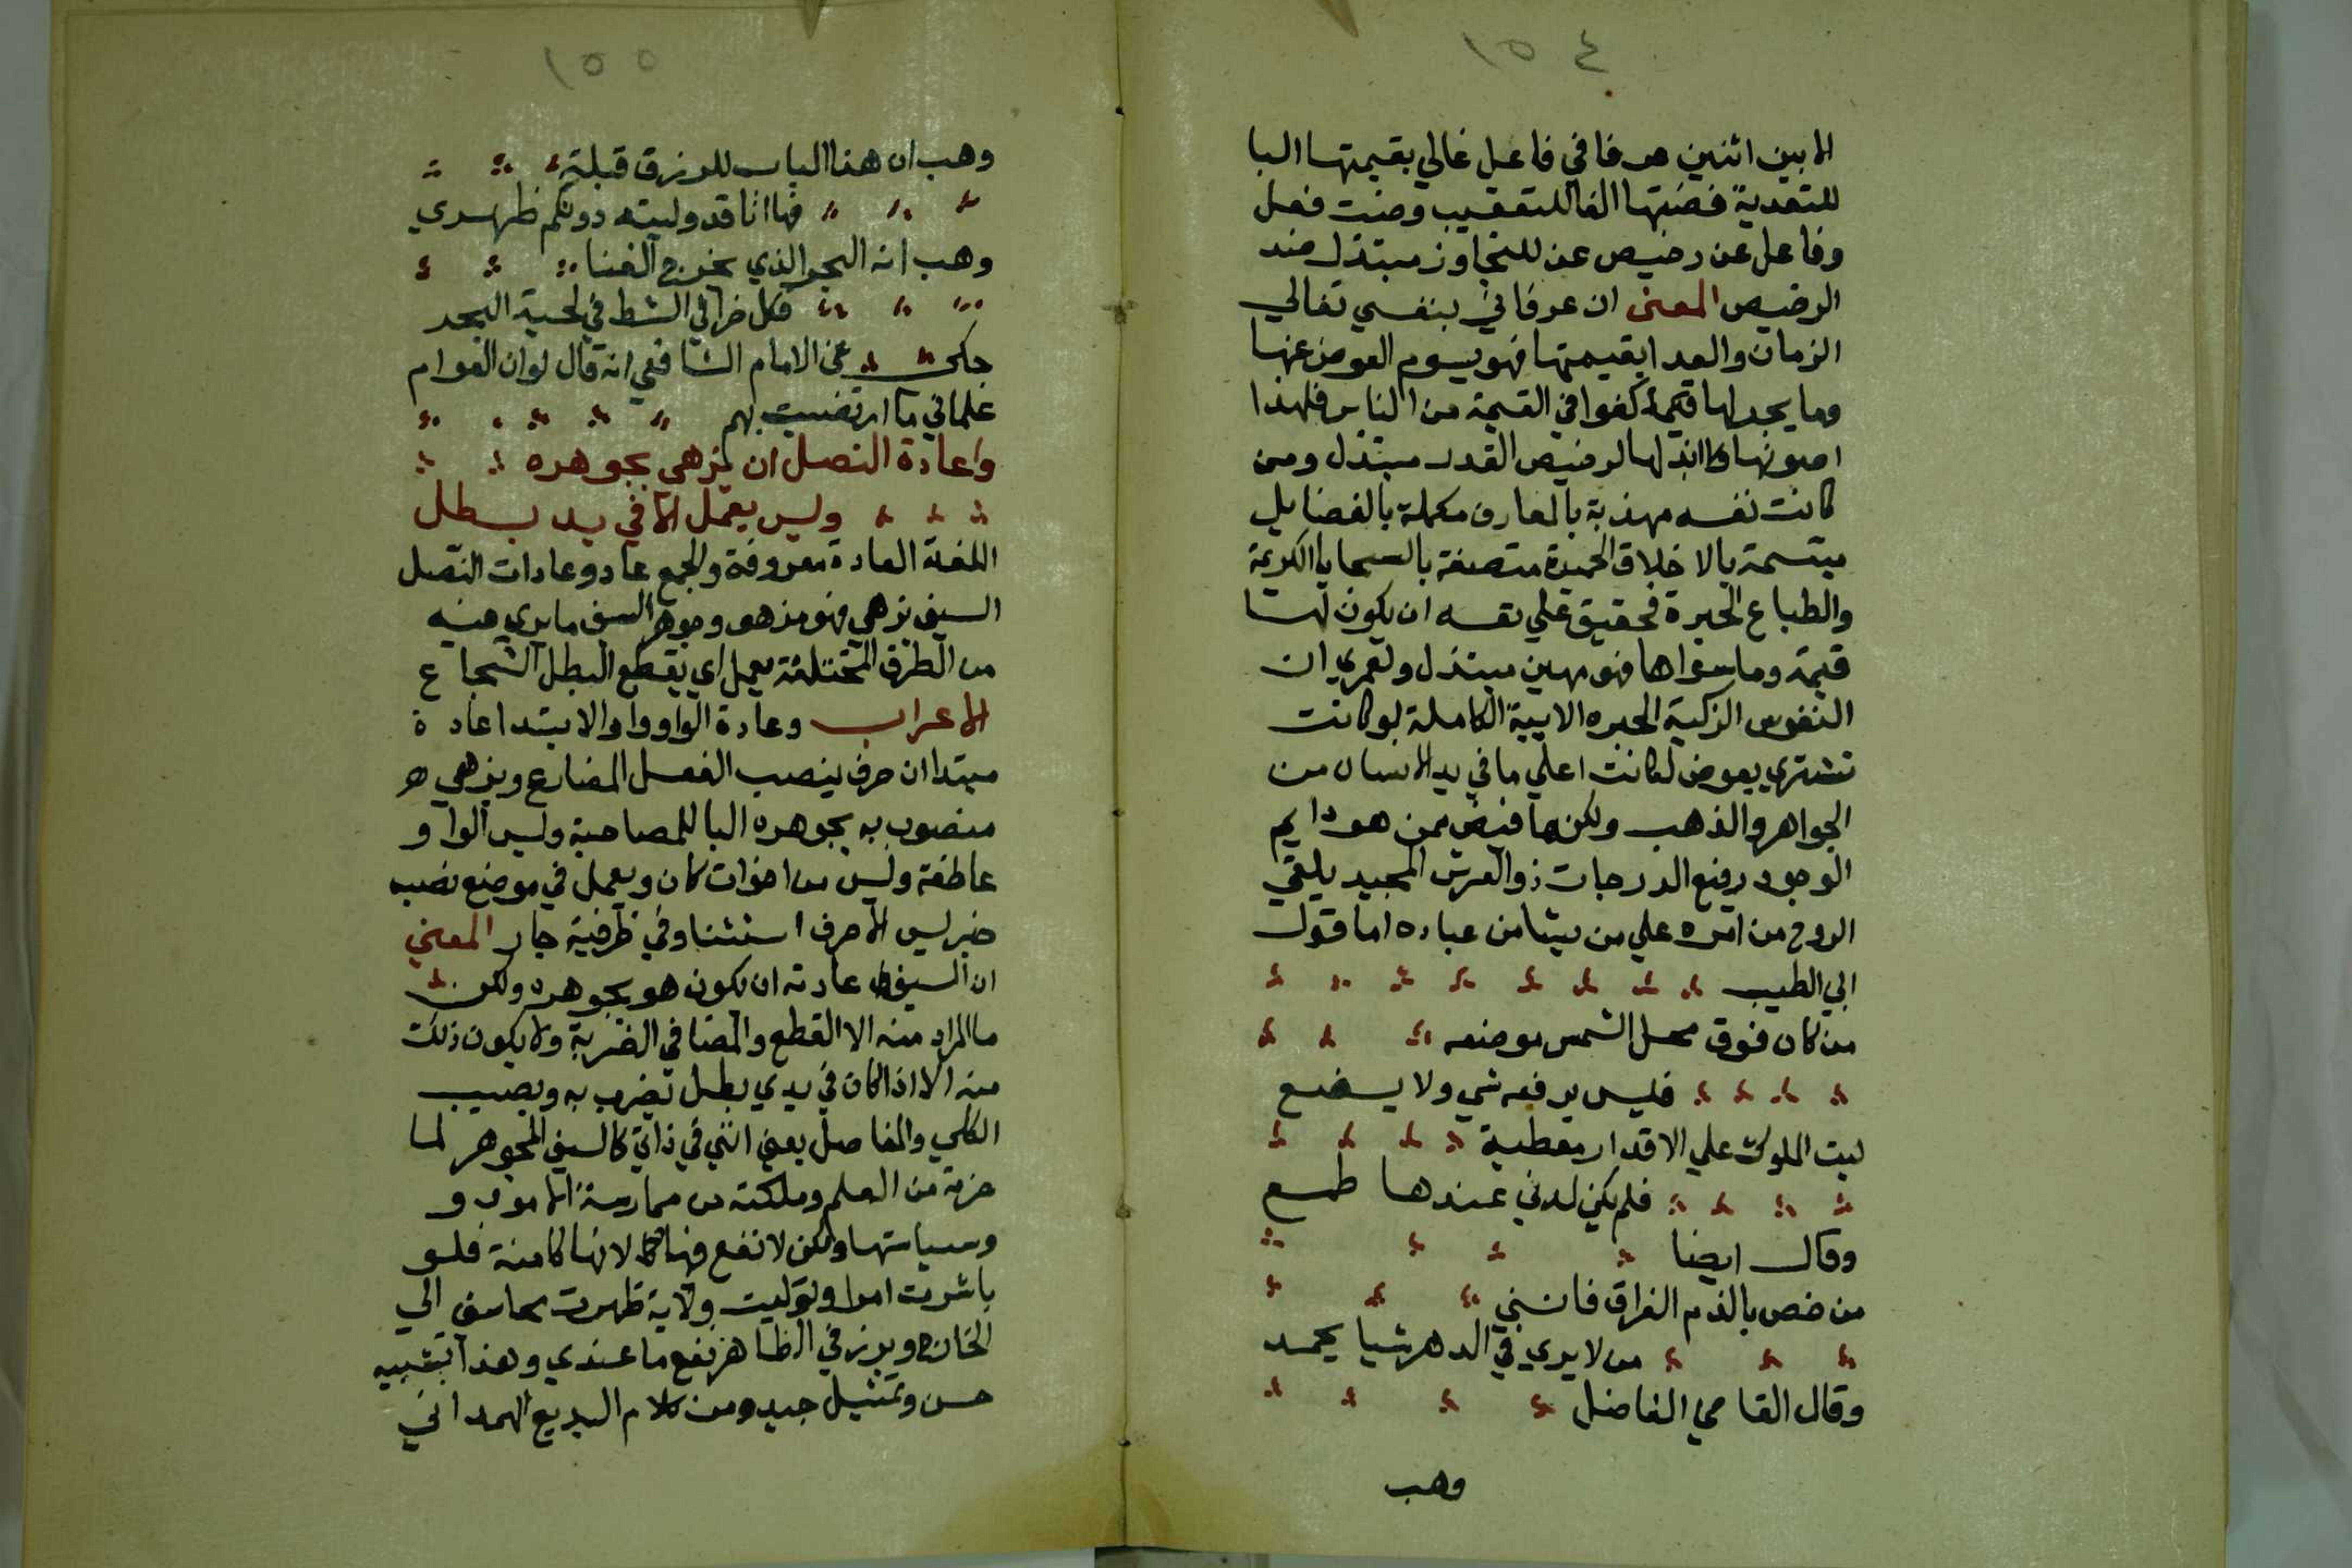 ١٥٤
الا بين اثنين عرفاني فاعل غالي بقيمتها البا
للتعدية فصنتها الفا للتعقيب وصنت فعل
وفاعل عن رخيص عن للتجاوز مبتذل ضد
الرخيص المعنى ان عرفاني بنفسي تغالي
الزمان والعدا بقيمتها فهو يسوم العوض عنها
وما يجد لها كفوا في القيمة من الناس فلهذا
اصونها ولا ابذلها لرخيص القدر مبتذل ومن
كانت نفسه مهذبة بالمعارف مكملة بالفضايل
متسمة بالاخلاق الحميدة متصفة بالسجايا الكريمة
والطباع الخيرة فحقيق علي نفسه ان يكون لها
قيمة وما سواها فهو مهين مبتذل ولعمري ان
النفوس الزكية الخيره الابية الكاملة لو كانت
تشتري بعوض لكانت اعلي ما في يد الانسان من
الجواهر والذهب ولكنها فيض ممن هو دايم
الوجود رفيع الدرجات ذو العرش المجيد يلقي
الروح من امره علي من يشا من عباده اما قول
ابي الطيب
من كان فوق محل الشمس موضعه
فليس يرفعه شي ولا يضع
ليت الملوك علي الاقدار معطية
فلم يكن لدني عندها طمع
وقال ايضا
من خص بالذم الفراق فانني
من لا يري في الدهر شيا يحمد
وقال القاضي الفاضل
وهب
١٥٥
وهب ان هذا الباب للرزق قبلة
فها انا قد وليته دونكم ظهري
وهب انه البحر الذي يخرج الغنا
فكل خرا في الشط في لحية البحر
حكي عن الامام الشافعي انه قال لو ان العوام
غلماني ما ارتضيت بهم
واعادة النصل ان يزهي بجوهره
وليس يعمل الا في يد بطل
اللغة العادة معروفة والجمع عاد وعادات النصل
السيف يزهي فهو مزهو وجوهر السيف ما يري فيه
من الطرق المختلفة يعمل اي يقطع البطل الشجاع
الاعراب وعادة الواو واو الابتدا عادة
مبتدا ان حرف ينصب الفعل المضارع ويزهي
منصوب به بجوهره البا للمصاحبة وليس الواو
عاطفة وليس من اخوات كان ويعمل في موضع نصب
خبر ليس الا حرف استثنا وفي ظرفية جار المعني
ان السيف عادته ان يكون هو بجوهره ولكن
ما المراد منه الا القطع والمضا في الضربة ولا يكون ذلك
منه الا اذا كان في يدي بطل يضرب به ويصيب
الكلي والمفاصل يعني انني في ذاتي كالسيف المجوهر لما
حزته من العلم وملكته من ممارسة الامور و
وسياستها ولكن لا نفع فيها لانها كامنة فلو
باشرت امرا وتوليت ولاية ظهرت محاسني الي
الخارج وبرز في الظاهر نفع ما عندي وهذا تشبيه
حسن وتمثيل جيد ومن كلام البديع الهمداني